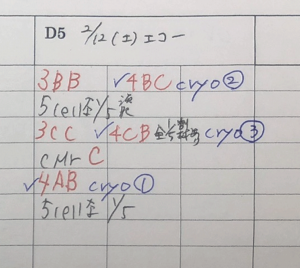 D5 2/12 (土) エコー
3BB ✓4BC cryo②
5cell 1/5
3CC ✓4CB cryo③
cMr C
✓4AB cryo①
5cell 1/5